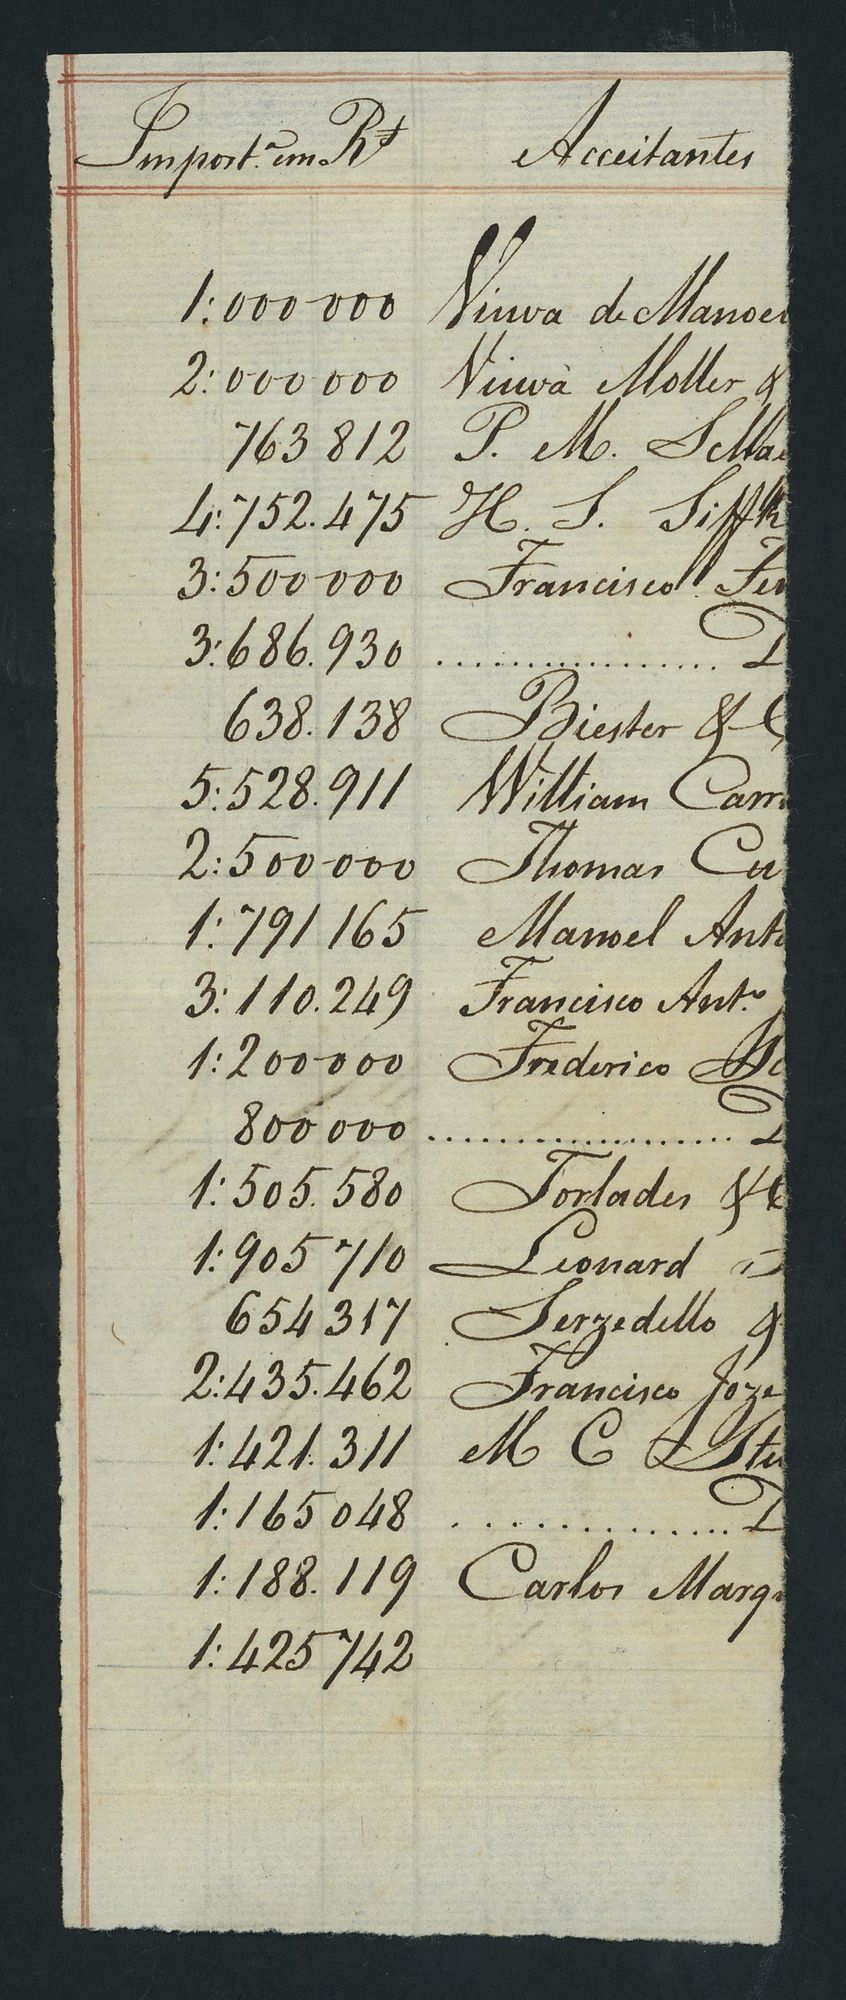 Import.ª em Rˢ Acceitantes
1:000000 Viuva de Manoel
2:000000 Viuva Moller &
763812 P. M.
4:752.475 H. S.
3:500000 Francisco
3:686.930 ..................
638.138 Biester &
5:528.911 William
2:500000 Thomas
1:791165 Manoel
3:110.249 Francisco Ant.º
1:200000 Frederico
800000 ..................
1:505.580 Torlades &
1:905710 Leonard
654317 Serzedello &
2:435.462 Francisco Joze
1:421.311 M C
1:165048 ..................
1:188.119 Carlos
1:425742